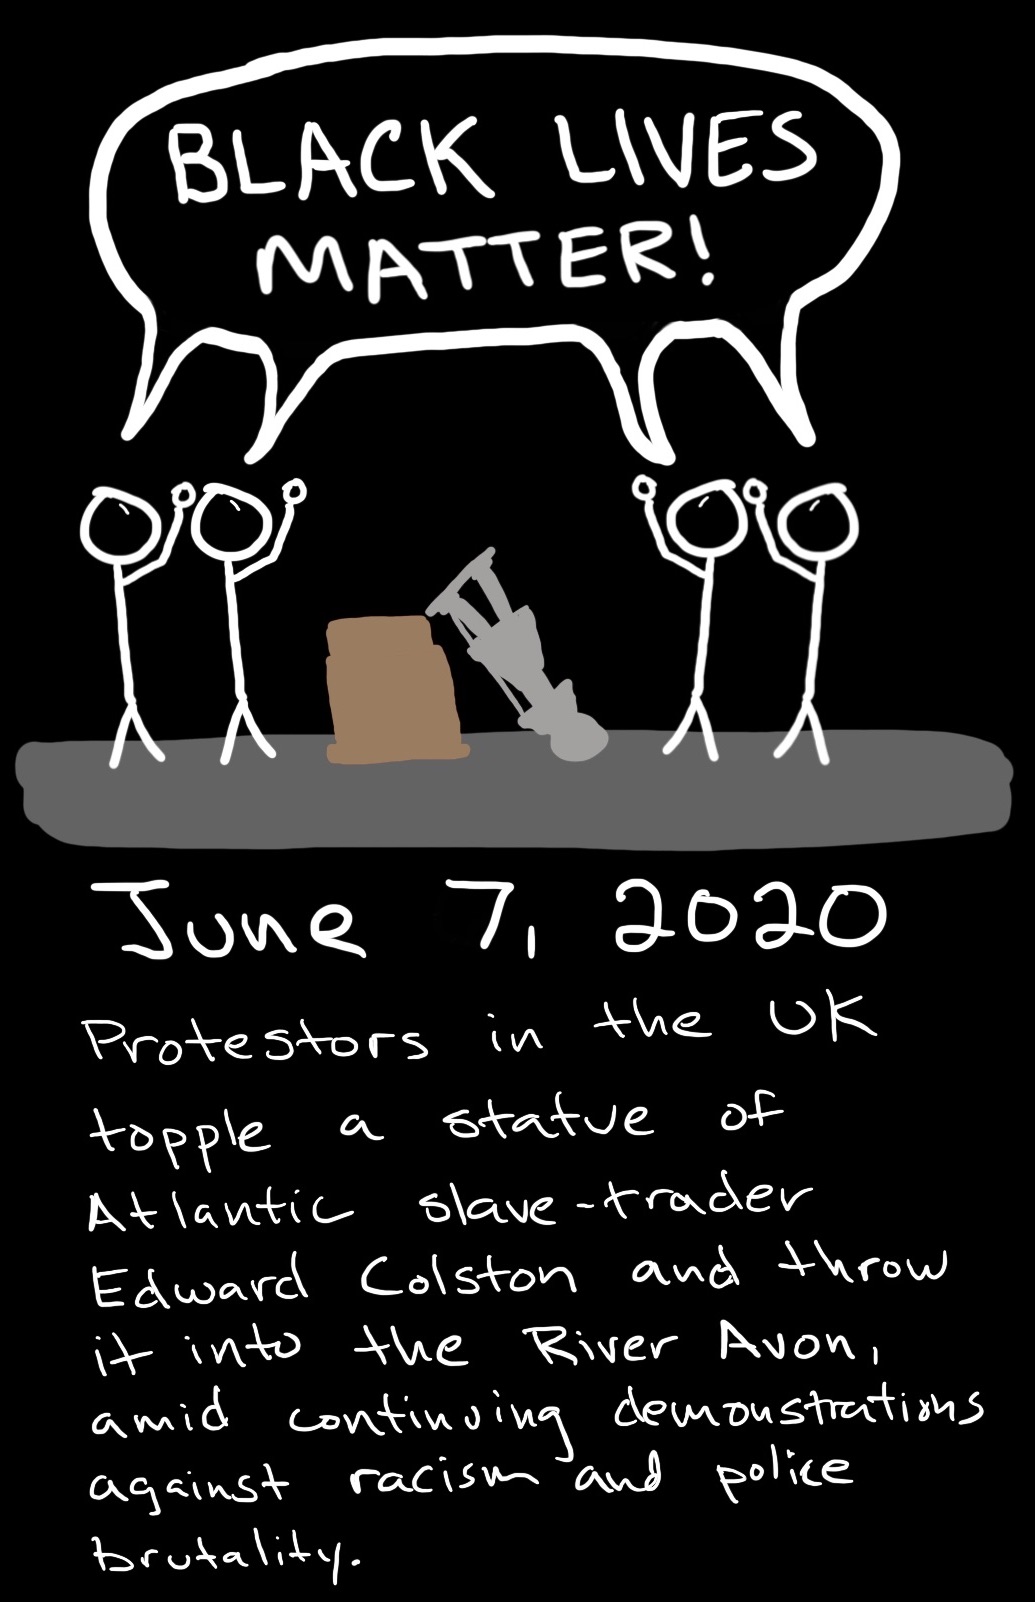 BLACK LIVES
MATTER!
June 7, 2020
Protestors in the UK
topple a statue of
Atlantic slave-trader
Edward Colston and throw
it into the River Avon,
amid continuing demonstrations
against racism and police
brutality.